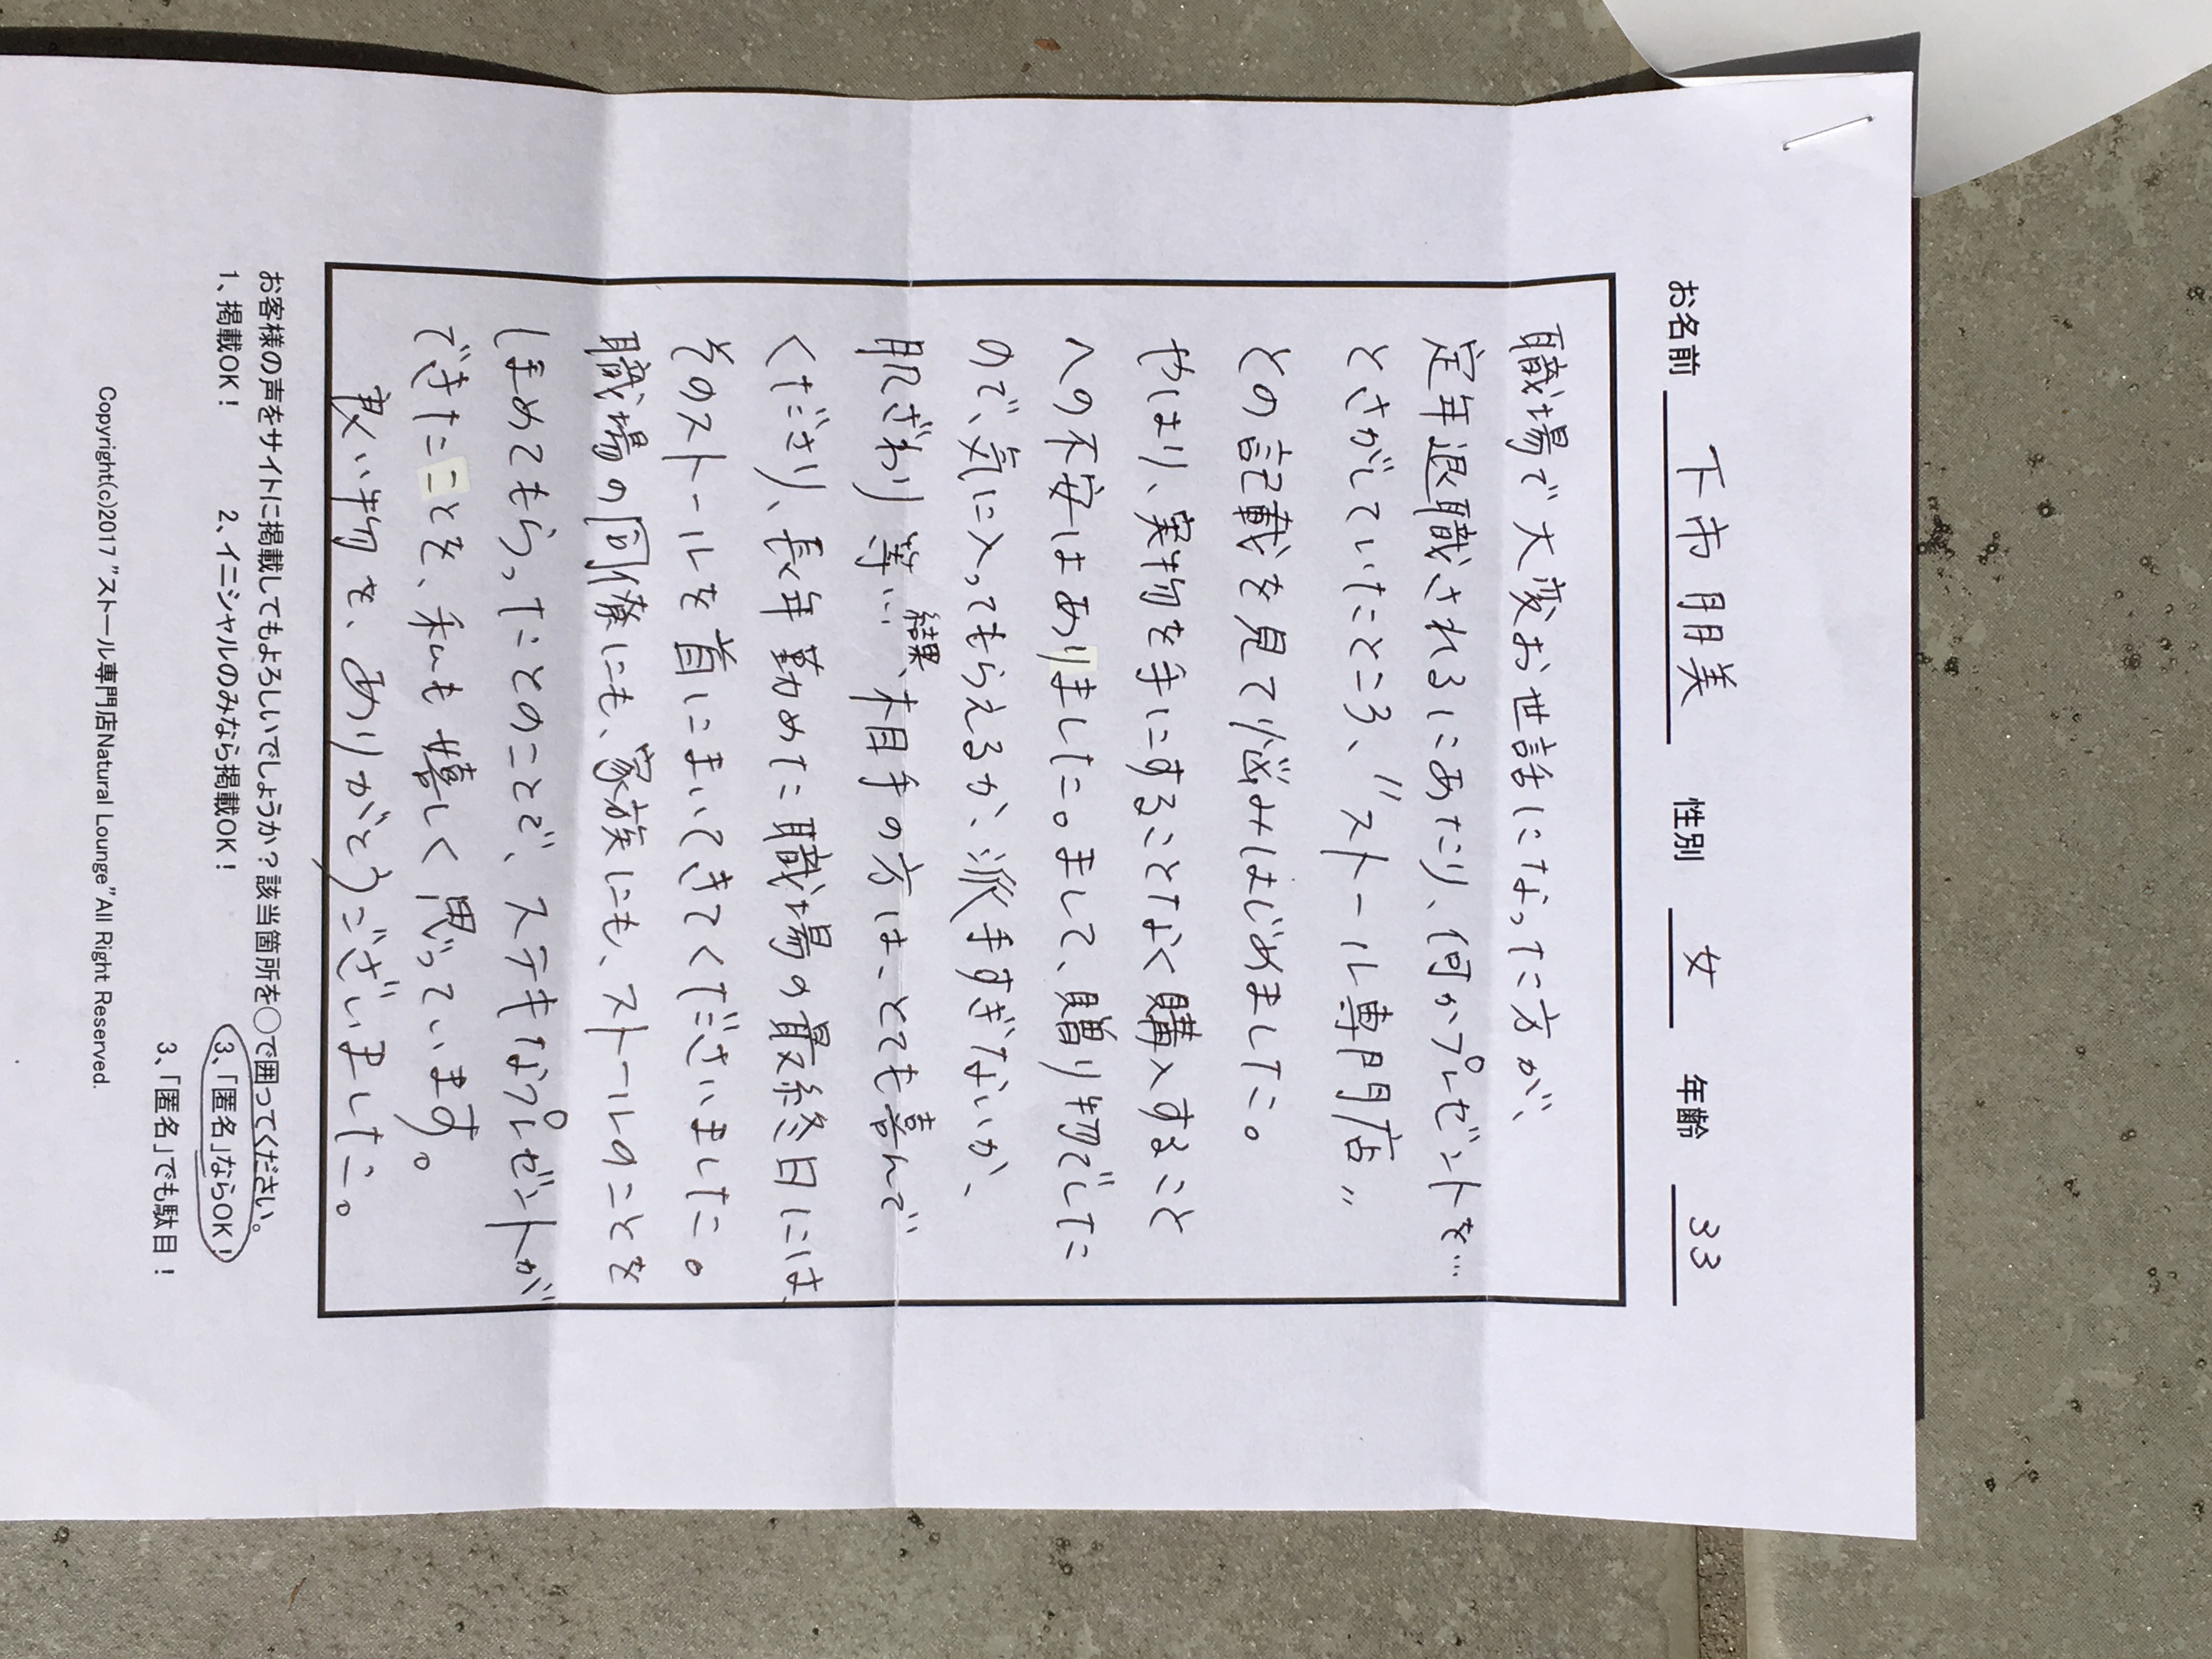 お名前 下市 朋美 性別 女 年齢 33
職場で大変お世話になった方が、
定年退職されるにあたり、何かプレゼントを…
とさがしていたところ、"ストール専門店"
との記載を見て悩みはじめました。
やはり、実物を手にすることなく購入すること
への不安はありました。まして、贈り物でした
ので、気に入ってもらえるか、派手すぎないか、
肌ざわり等… 結果、相手の方は、とても喜んで
くださり、長年勤めた職場の最終日には
そのストールを首にまいてきてくださいました。
職場の同僚にも、家族にも、ストールのことを
ほめてもらったとのことで、ステキなプレゼントが
できたことを、私も嬉しく思っています。
良い物を、ありがとうございました。
お客様の声をサイトに掲載してもよろしいでしょうか？該当箇所を○で囲ってください。
1、掲載OK！ 2、イニシャルのみなら掲載OK！ 3、「匿名」ならOK！
3、「匿名」でも駄目！
Copyright(c)2017 "ストール専門店Natural Lounge"All Right Reserved.